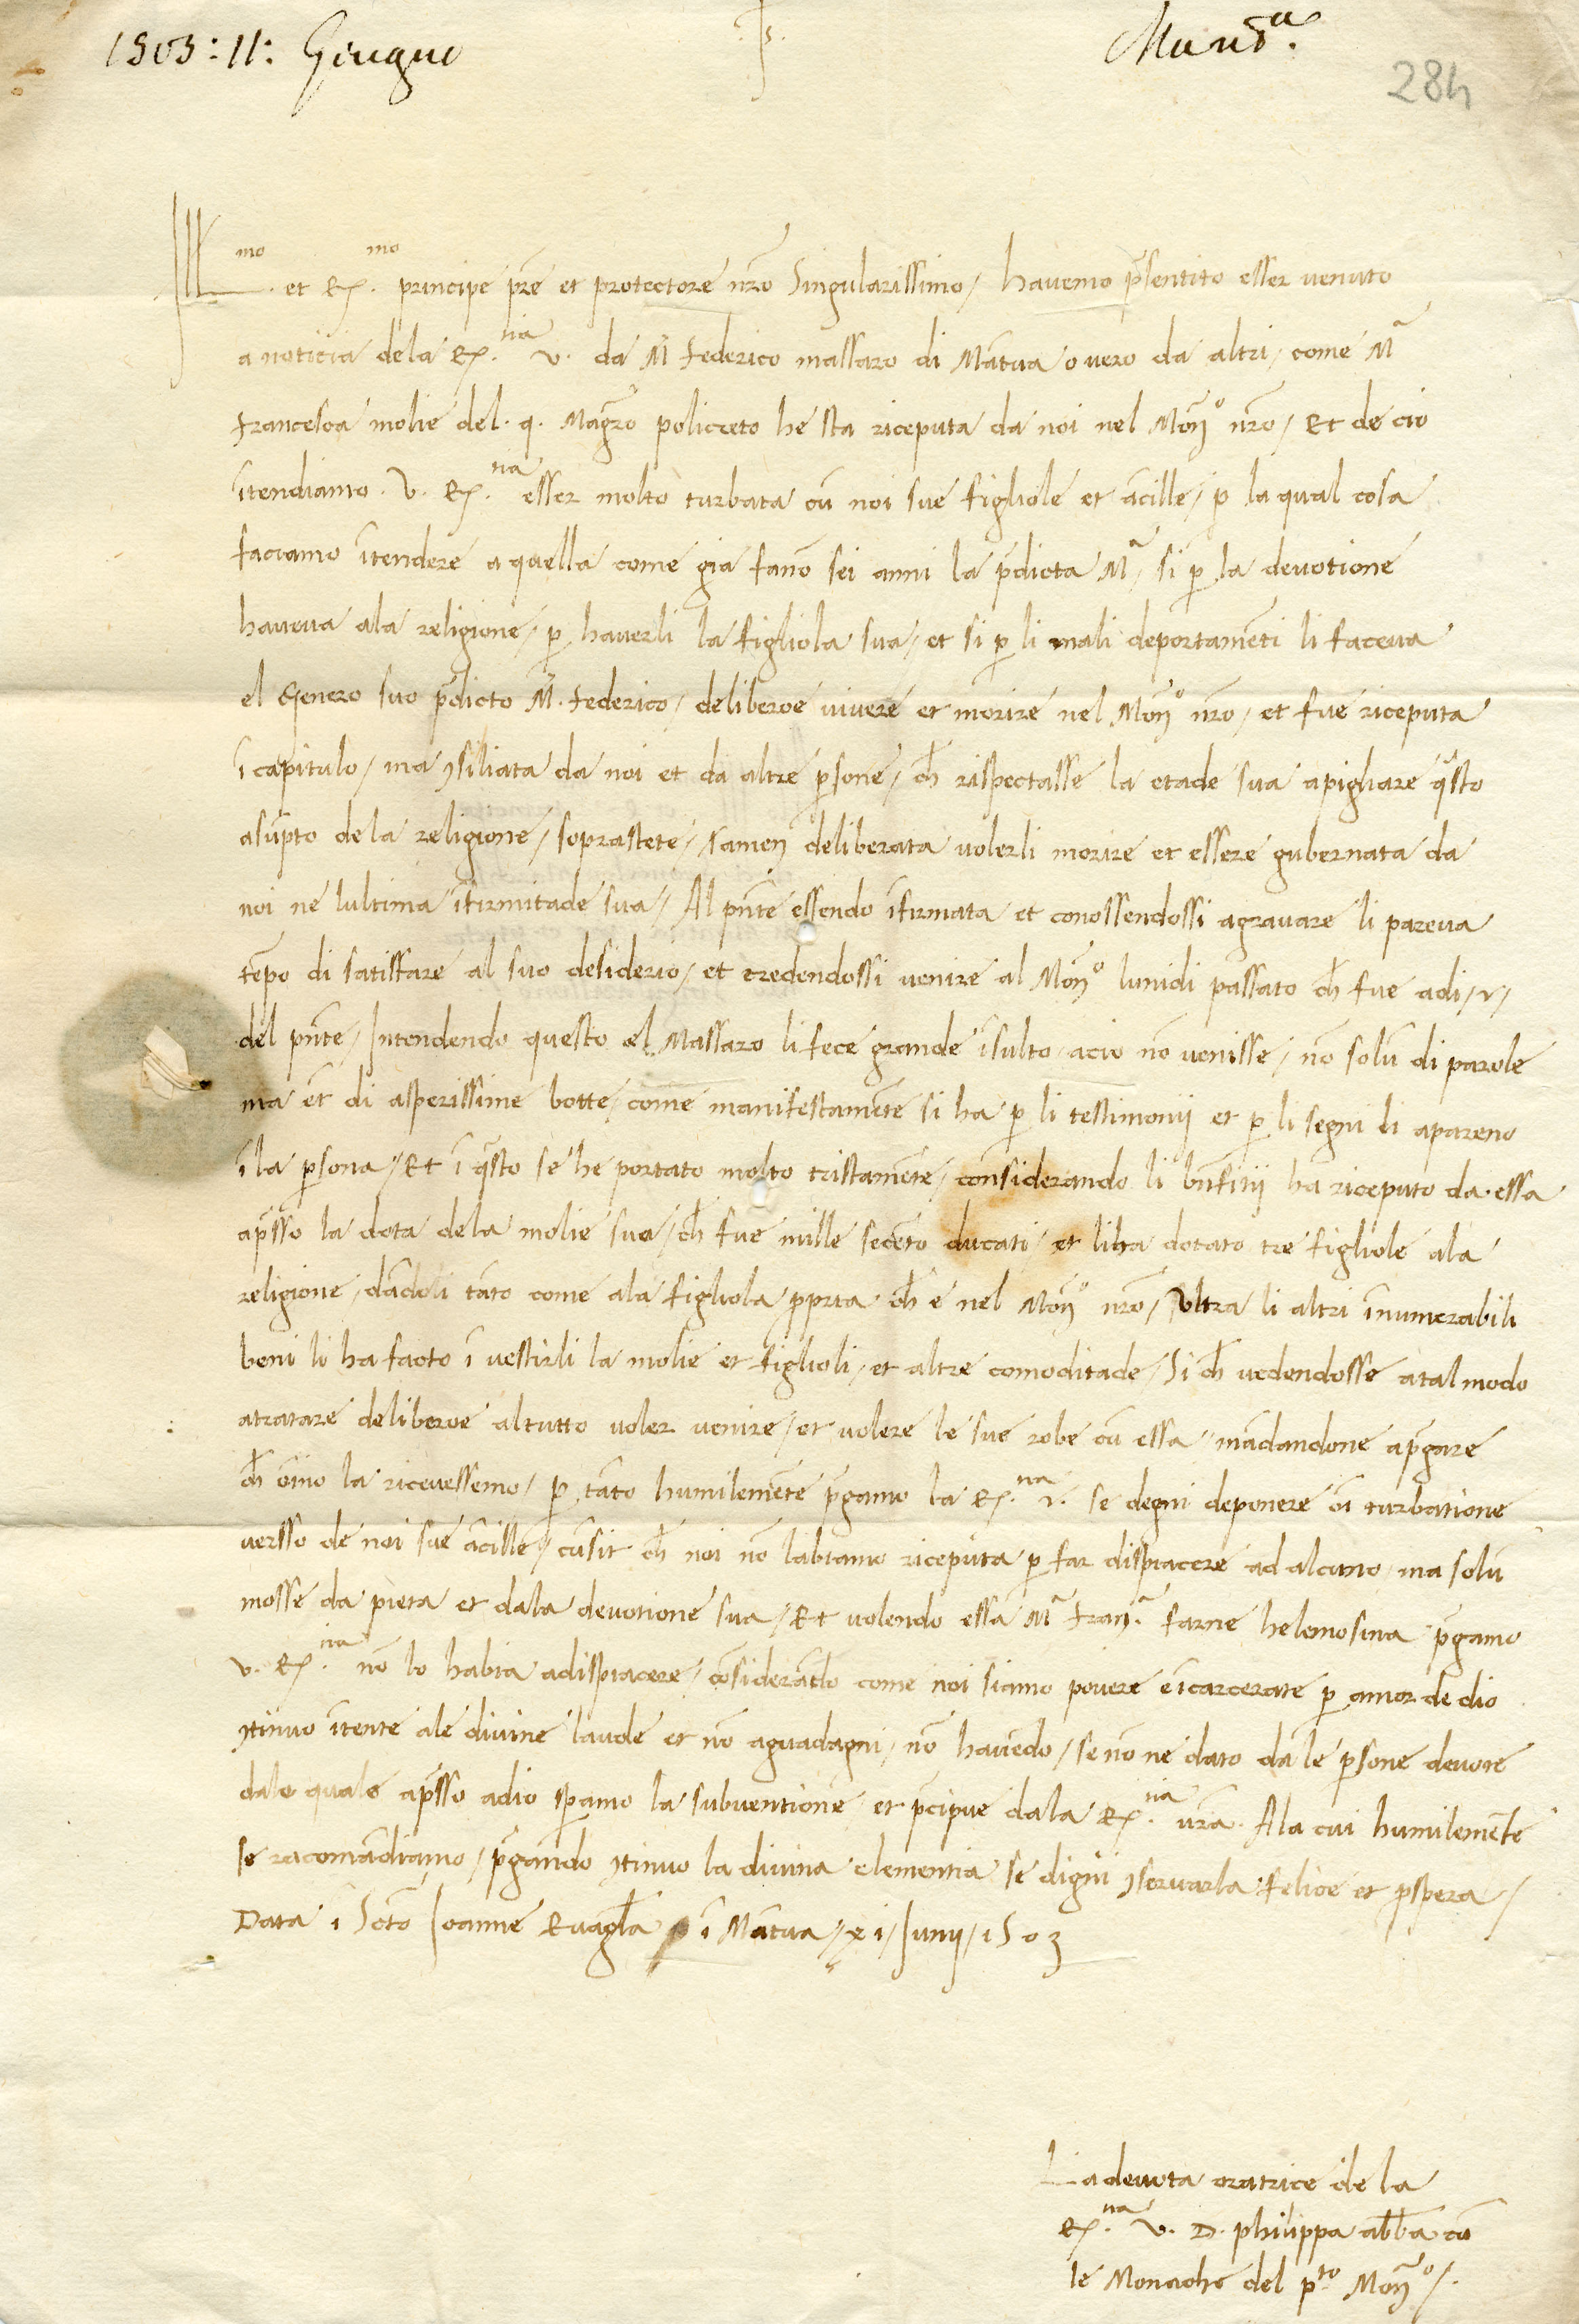 1503: 11: Giugno
Mant.a
284
Ill.mo et R.mo principe pre et protectore nro Singularissimo / havemo psentito esser venuto
a noticia dela R.ria v. da M federico massaro di Matua o vero da altri / come Ma
francesca molie del . q. Magro policreto he sta riceputa da noi nel Mon.o nro / Et de cio
itendiamo . V. R.ria esser molto turbata cu noi sue figliole et acille / p la qual cosa
faciamo itendere a quella come gia fano sei anni la pdicta Ma / si p la devotione
haveva ala religione / p haverli la figliola sua / et si p li mali deportameti li faceva
el Genero suo pdicto M. federico / deliberoe vivere et morire nel Mon.o nro / et fue riceputa
i capitulo / ma 9siliata da noi et da altre psone / ch rispectasse la etade sua a pigliare qsto
asupto de la religione / soprastete / tamen deliberata volerli morire et essere gubernata da
noi ne lultima ifirmitade sua / Al pnte essendo ifirmata et conossendossi agravare li pareva
tepo di satisfare al suo desiderio / et credendossi venire al Mon.o lunidi passato ch fue adi / v /
del pnte / Intendendo questo el Massaro li fece grande isulto acio no venisse / no solu di parole
ma et di asperissime botte / come manifestamete si ha p li testimonij et p li segni li apareno
i la psona / Et i qsto se he portato molto tristamete / considerando li bnficij ha riceputo da essa
apsso la dota dela molie sua / ch fue mille seceto ducati / et li ha dotato tre figliole ala
religione / dadoli tato come ala figliola ppria ch e nel Mon.o nro / Ultra li altri inumerabili
beni li ha facto i vestirli la molie et figlioli / et altre comoditade / Si ch vedendosse a tal modo
atratare deliberoe al tutto voler venire / et volere le sue robe cu essa / madandone a pgare
ch oino la ricevessemo / p tato humilemete pgamo la R.ria v. se degni deponere oi turbatione
versso de noi sue acille / cusit ch noi no labiamo riceputa p far dispiacere ad alcuno / ma solu
mosse da pieta et dala devotione sua / Et volendo essa Ma Fran.a farne helemosina pgamo
v. R.ria no lo habia a dispiacere / cosiderado come noi siamo povere eicarcerate p amor de dio
9tinuo itente ale divine laude et no a guadagni / no havedo / se no ne dato da le psone devote
dale quale apsso a dio spamo la subventione et pcipue dala R.ria vra. Ala cui humilemete
se racomadiamo / pgando 9tinuo la divina clementia se digni 9servarla felice et pspera /
Data i Scto Joanne Evagla i Matua / xi / Junij / 1503
La devota oratrice de la
R.ria V. D. philippa abba cu
le Monache del p.to Mon.o /.